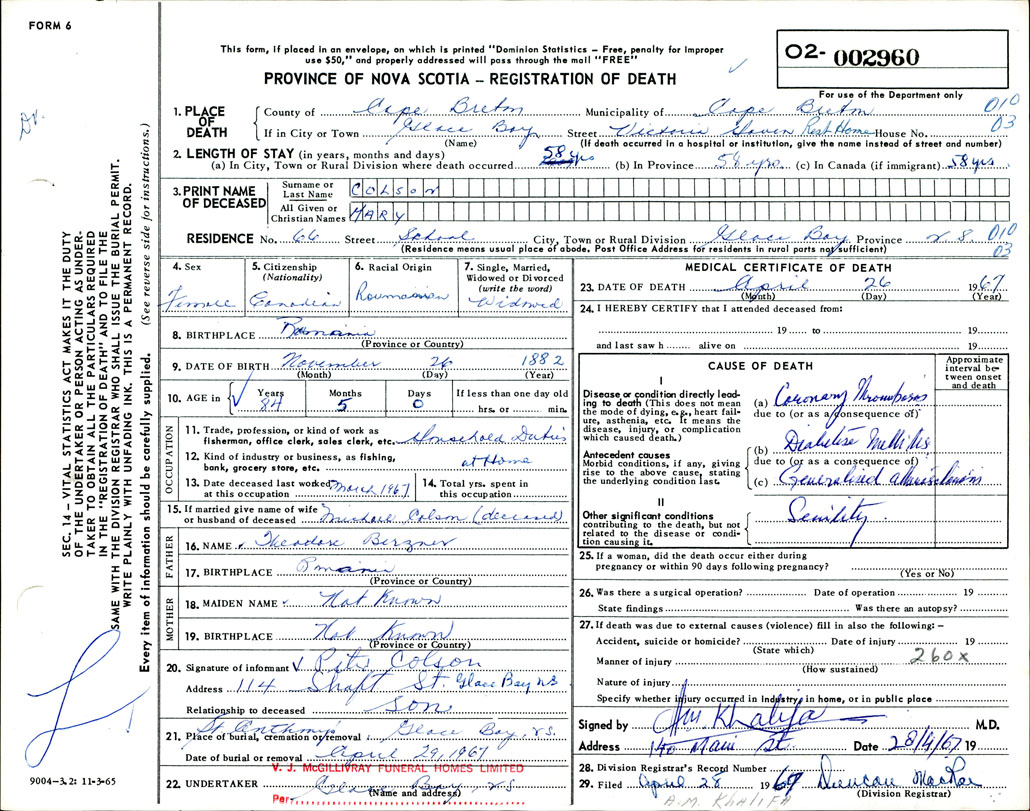 FORM 6
This form, if placed in an envelope, on which is printed "Dominion Statistics – Free, penalty for improper
use $50," and properly addressed will pass through the mail "FREE"
PROVINCE OF NOVA SCOTIA – REGISTRATION OF DEATH
O2- 002960
For use of the Department only
Dr.
SEC. 14 – VITAL STATISTICS ACT MAKES IT THE DUTY
OF THE UNDERTAKER OR PERSON ACTING AS UNDER-
TAKER TO OBTAIN ALL THE PARTICULARS REQUIRED
IN THE "REGISTRATION OF DEATH" AND TO FILE THE
SAME WITH THE DIVISION REGISTRAR WHO SHALL ISSUE THE BURIAL PERMIT.
WRITE PLAINLY WITH UNFADING INK. THIS IS A PERMANENT RECORD.
Every item of information should be carefully supplied. (See reverse side for instructions.)
1. PLACE OF DEATH
County of Cape Breton Municipality of Cape Breton 010
If in City or Town Glace Bay Street Victoria Haven Rest Home House No. 03
(Name) (If death occurred in a hospital or institution, give the name instead of street and number)
2. LENGTH OF STAY (in years, months and days)
(a) In City, Town or Rural Division where death occurred 58 yrs (b) In Province 58 yrs. (c) In Canada (if immigrant) 58 yrs
3. PRINT NAME OF DECEASED
Surname or Last Name COLSON
All Given or Christian Names MARY
RESIDENCE No. 66 Street School City, Town or Rural Division Glace Bay Province N S. 010
(Residence means usual place of abode. Post Office Address for residents in rural parts not sufficient) 03
4. Sex Female
5. Citizenship (Nationality) Canadian
6. Racial Origin Roumanian
7. Single, Married, Widowed or Divorced (write the word) Widowed
8. BIRTHPLACE Roumania
(Province or Country)
9. DATE OF BIRTH November 26 1882
(Month) (Day) (Year)
10. AGE in Years Months Days If less than one day old
84 5 0 hrs. or min.
OCCUPATION
11. Trade, profession, or kind of work as
fisherman, office clerk, sales clerk, etc. Household Duties
12. Kind of industry or business, as fishing,
bank, grocery store, etc. at Home
13. Date deceased last worked at this occupation March 1967
14. Total yrs. spent in this occupation
15. If married give name of wife
or husband of deceased Michael Colson (deceased)
FATHER
16. NAME Theodore Berzner
17. BIRTHPLACE Rmania
(Province or Country)
MOTHER
18. MAIDEN NAME Not Known
19. BIRTHPLACE Not Known
(Province or Country)
20. Signature of informant Peter Colson
Address 114 Shaft St. Glace Bay NS
Relationship to deceased son
21. Place of burial, cremation or removal St Anthony's Glace Bay, N.S.
Date of burial or removal April 29, 1967
V. J. McGILLIVRAY FUNERAL HOMES LIMITED
22. UNDERTAKER Glace Bay, N S
(Name and address)
Per
9004–3.2: 11-3-65
MEDICAL CERTIFICATE OF DEATH
23. DATE OF DEATH April 26 1967
(Month) (Day) (Year)
24. I HEREBY CERTIFY that I attended deceased from:
19 to 19
and last saw h alive on 19
CAUSE OF DEATH
Approximate interval between onset and death
I
Disease or condition directly leading to death (This does not mean the mode of dying, e.g., heart failure, asthenia, etc. It means the disease, injury, or complication which caused death.)
(a) Coronary Thrombosis
due to (or as a consequence of)
Antecedent causes
Morbid conditions, if any, giving rise to the above cause, stating the underlying condition last.
(b) Diabetise Mellitis
due to (or as a consequence of)
(c) Generalised
II
Other significant conditions
contributing to the death, but not related to the disease or condition causing it.
Senility
25. If a woman, did the death occur either during
pregnancy or within 90 days following pregnancy?
(Yes or No)
26. Was there a surgical operation? Date of operation 19
State findings Was there an autopsy?
27. If death was due to external causes (violence) fill in also the following: –
Accident, suicide or homicide? Date of injury 19
(State which)
Manner of injury 260x
(How sustained)
Nature of injury
Specify whether injury occurred in industry, in home, or in public place
Signed by AM Khalifa M.D.
Address 140 Main St. Date 28/4/67 19
28. Division Registrar's Record Number
29. Filed April 28 1967 Duncan MacRae
(Division Registrar)
A.M. KHALIFA